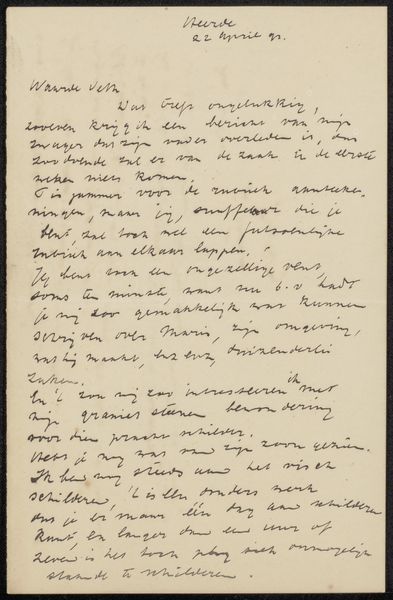 Heerde
22 April 91.
Waarde Veth
Dat treft ongelukkig,
zooeven krijg ik een bericht van mijn
zwager dat zijn vader overleden is, dus
zoodoende zal er van de zaak in de eerste
weken niets komen.
't is jammer voor de rubriek aanteeke-
ningen, maar jij, snuffelaar die je
bent, zal toch wel een fatsoenlijke
rubriek aan elkaar lappen.
Jij bent toch een ongezellige vent,
soms ten minste, want nu b.v. hadt
je mij zoo gemakkelijk wat kunnen
schrijven over Maris, zijn omgeving,
wat hij maakt, enz enz, duizenderlei
zaken.
En 't zou mij zoo intresseeren ik met
mijn graniet steenen bewondering
voor dien pracht schilder.
Hebt je nog wat van zijn zoon gezien.
Ik ben nog steeds aan het visch
schilderen, 't is een donders werk
dat je er maar één dag aan schilderen
kunt, en langer dan een uur of
zeven is het toch ook onmogelijk
staande te schilderen.